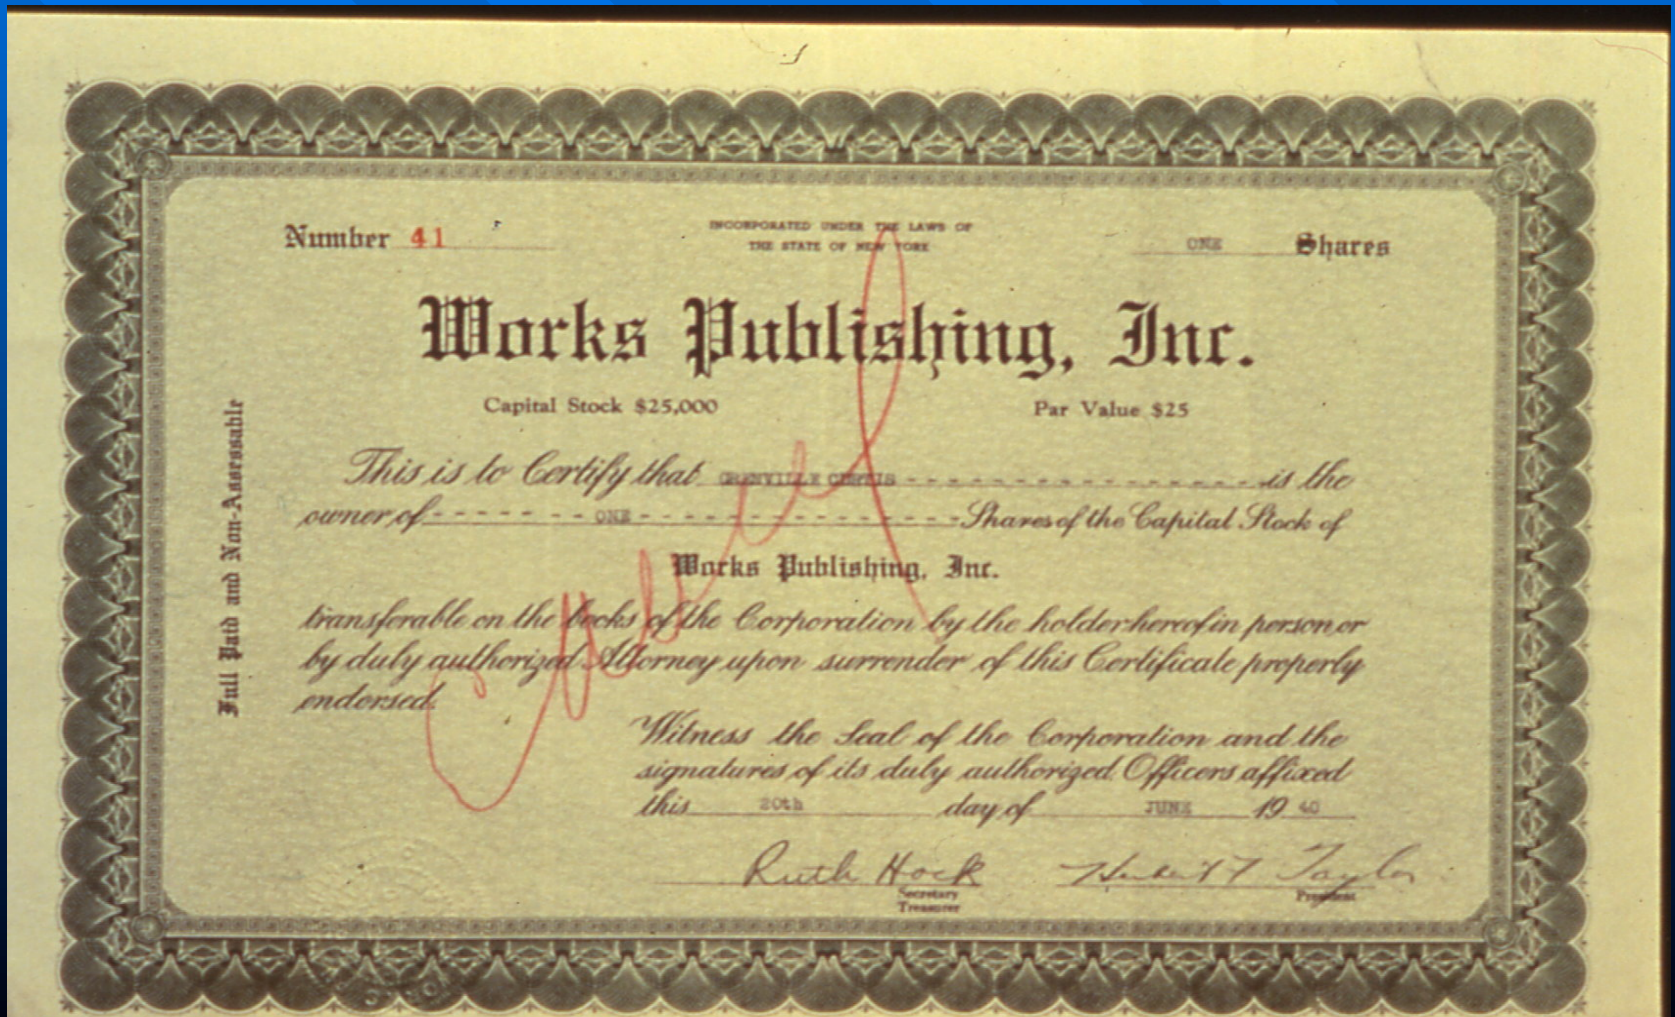 Number 41
INCORPORATED UNDER THE LAWS OF
THE STATE OF NEW YORK
ONE Shares
Works Publishing, Inc.
Capital Stock $25,000
Par Value $25
Full Paid and Non-Assessable
This is to Certify that GRENVILLE CURTIS is the
owner of ONE Shares of the Capital Stock of
Works Publishing, Inc.
transferable on the books of the Corporation by the holder hereof in person or
by duly authorized Attorney upon surrender of this Certificate properly
endorsed.
Witness the Seal of the Corporation and the
signatures of its duly authorized Officers affixed
this 20th day of JUNE 19 40
Ruth Hock
Secretary
Treasurer
Herbert F Taylor
President